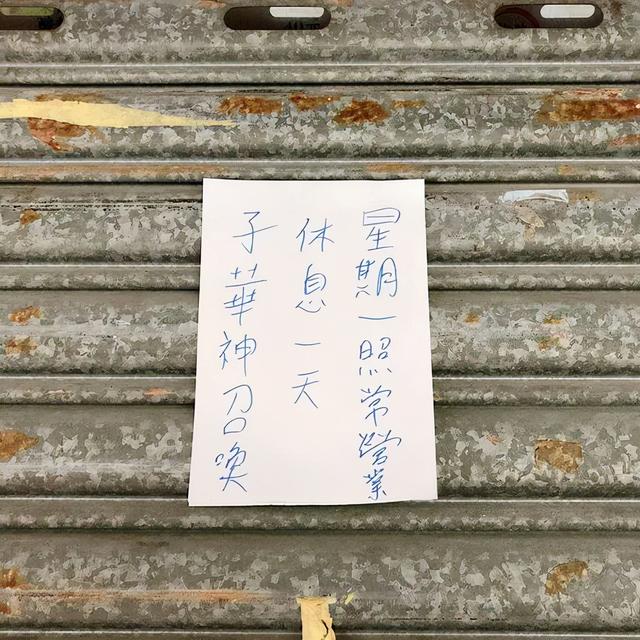 子華神召喚
休息一天
星期一照常營業